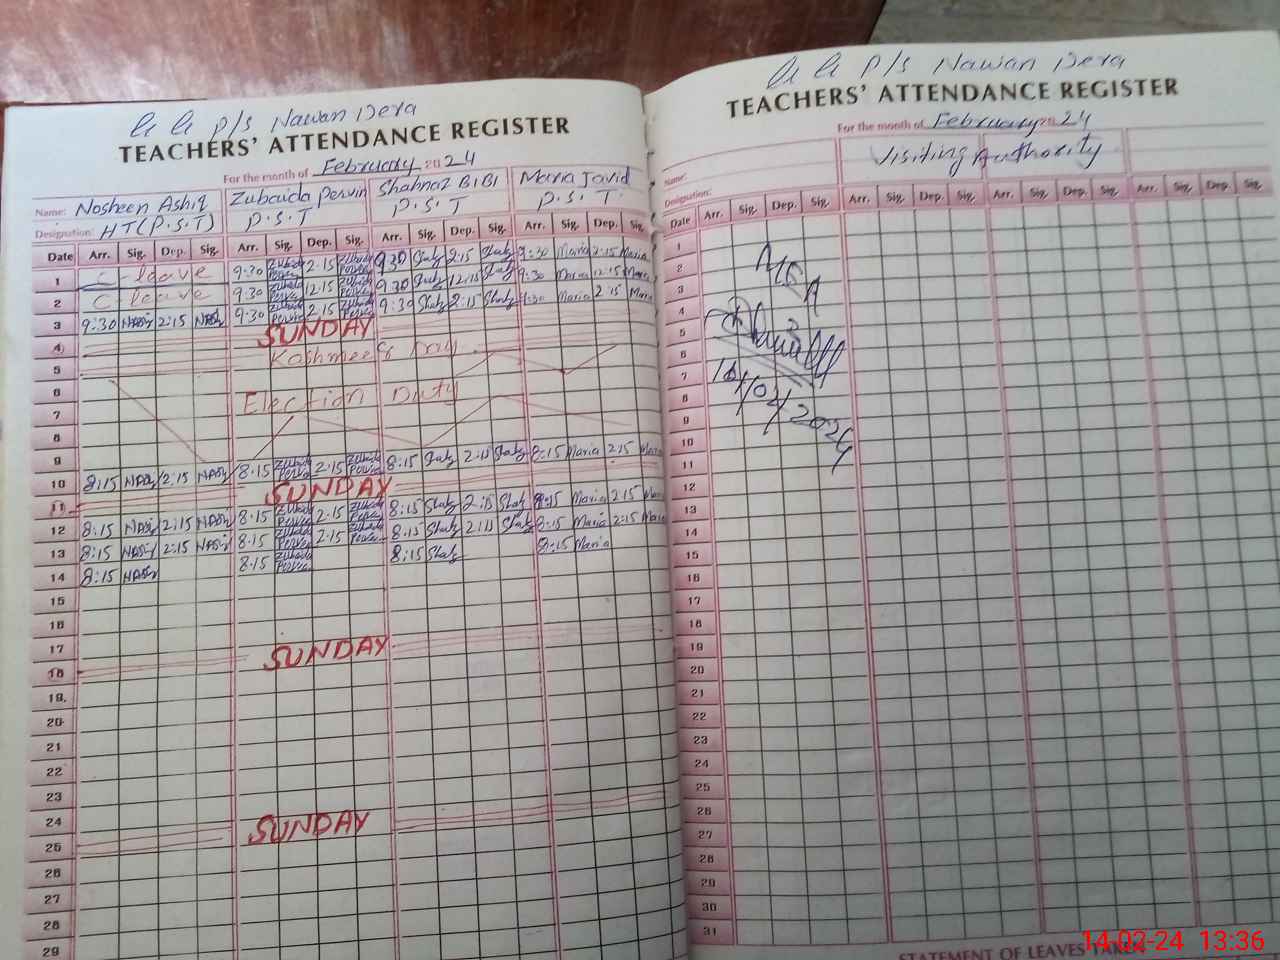 G G P/S Nawan Dera
TEACHERS' ATTENDANCE REGISTER
For the month of February 2024
Name: Nosheen Ashiq Zubaida Pervin Shahnaz BiBi Maria Javid
Designation: HT(P.S.T) P.S.T P.S.T P.S.T
Date Arr. Sig. Dep. Sig. Arr. Sig. Dep. Sig. Arr. Sig. Dep. Sig. Arr. Sig. Dep. Sig.
1 C leave 9:30 Zubaida Pervin 2:15 Zubaida Pervin 9:30 Shahz 2:15 Shahz 9:30 Maria 2:15 Maria
2 C leave 9:30 Zubaida Pervin 12:15 Zubaida Pervin 9:30 Shahz 12:15 Shahz 9:30 Maria 12:15 Maria
3 9:30 2:15 9:30 Zubaida Pervin 2:15 Zubaida Pervin 9:30 Shahz 2:15 Shahz 9:30 Maria 2:15 Maria
4 SUNDAY
5 Kashmeer Day
6
7 Election Duty
8
9
10 8:15 2:15 8:15 Zubaida Pervin 2:15 Zubaida Pervin 8:15 Shahz 2:15 Shahz 8:15 Maria 2:15 Maria
11 SUNDAY
12 8:15 2:15 8:15 Zubaida Pervin 2:15 Zubaida Pervin 8:15 Shahz 2:15 Shahz 8:15 Maria 2:15 Maria
13 8:15 2:15 8:15 Zubaida Pervin 2:15 Zubaida Pervin 8:15 Shahz 2:15 Shahz 8:15 Maria 2:15 Maria
14 8:15 8:15 Zubaida Pervin 8:15 Shahz 8:15 Maria
15
16
17
18 SUNDAY
19
20
21
22
23
24
25 SUNDAY
26
27
28
29
G G P/S Nawan Dera
TEACHERS' ATTENDANCE REGISTER
For the month of February 2024
Name: Visiting Authority
Designation:
Date Arr. Sig. Dep. Sig. Arr. Sig. Dep. Sig. Arr. Sig. Dep. Sig. Arr. Sig. Dep. Sig.
1
2
3 MEA
4
5
6
7
8 14/02/2024
9
10
11
12
13
14
15
16
17
18
19
20
21
22
23
24
25
26
27
28
29
30
31
STATEMENT OF LEAVES TAKEN
14-02-24 13:36